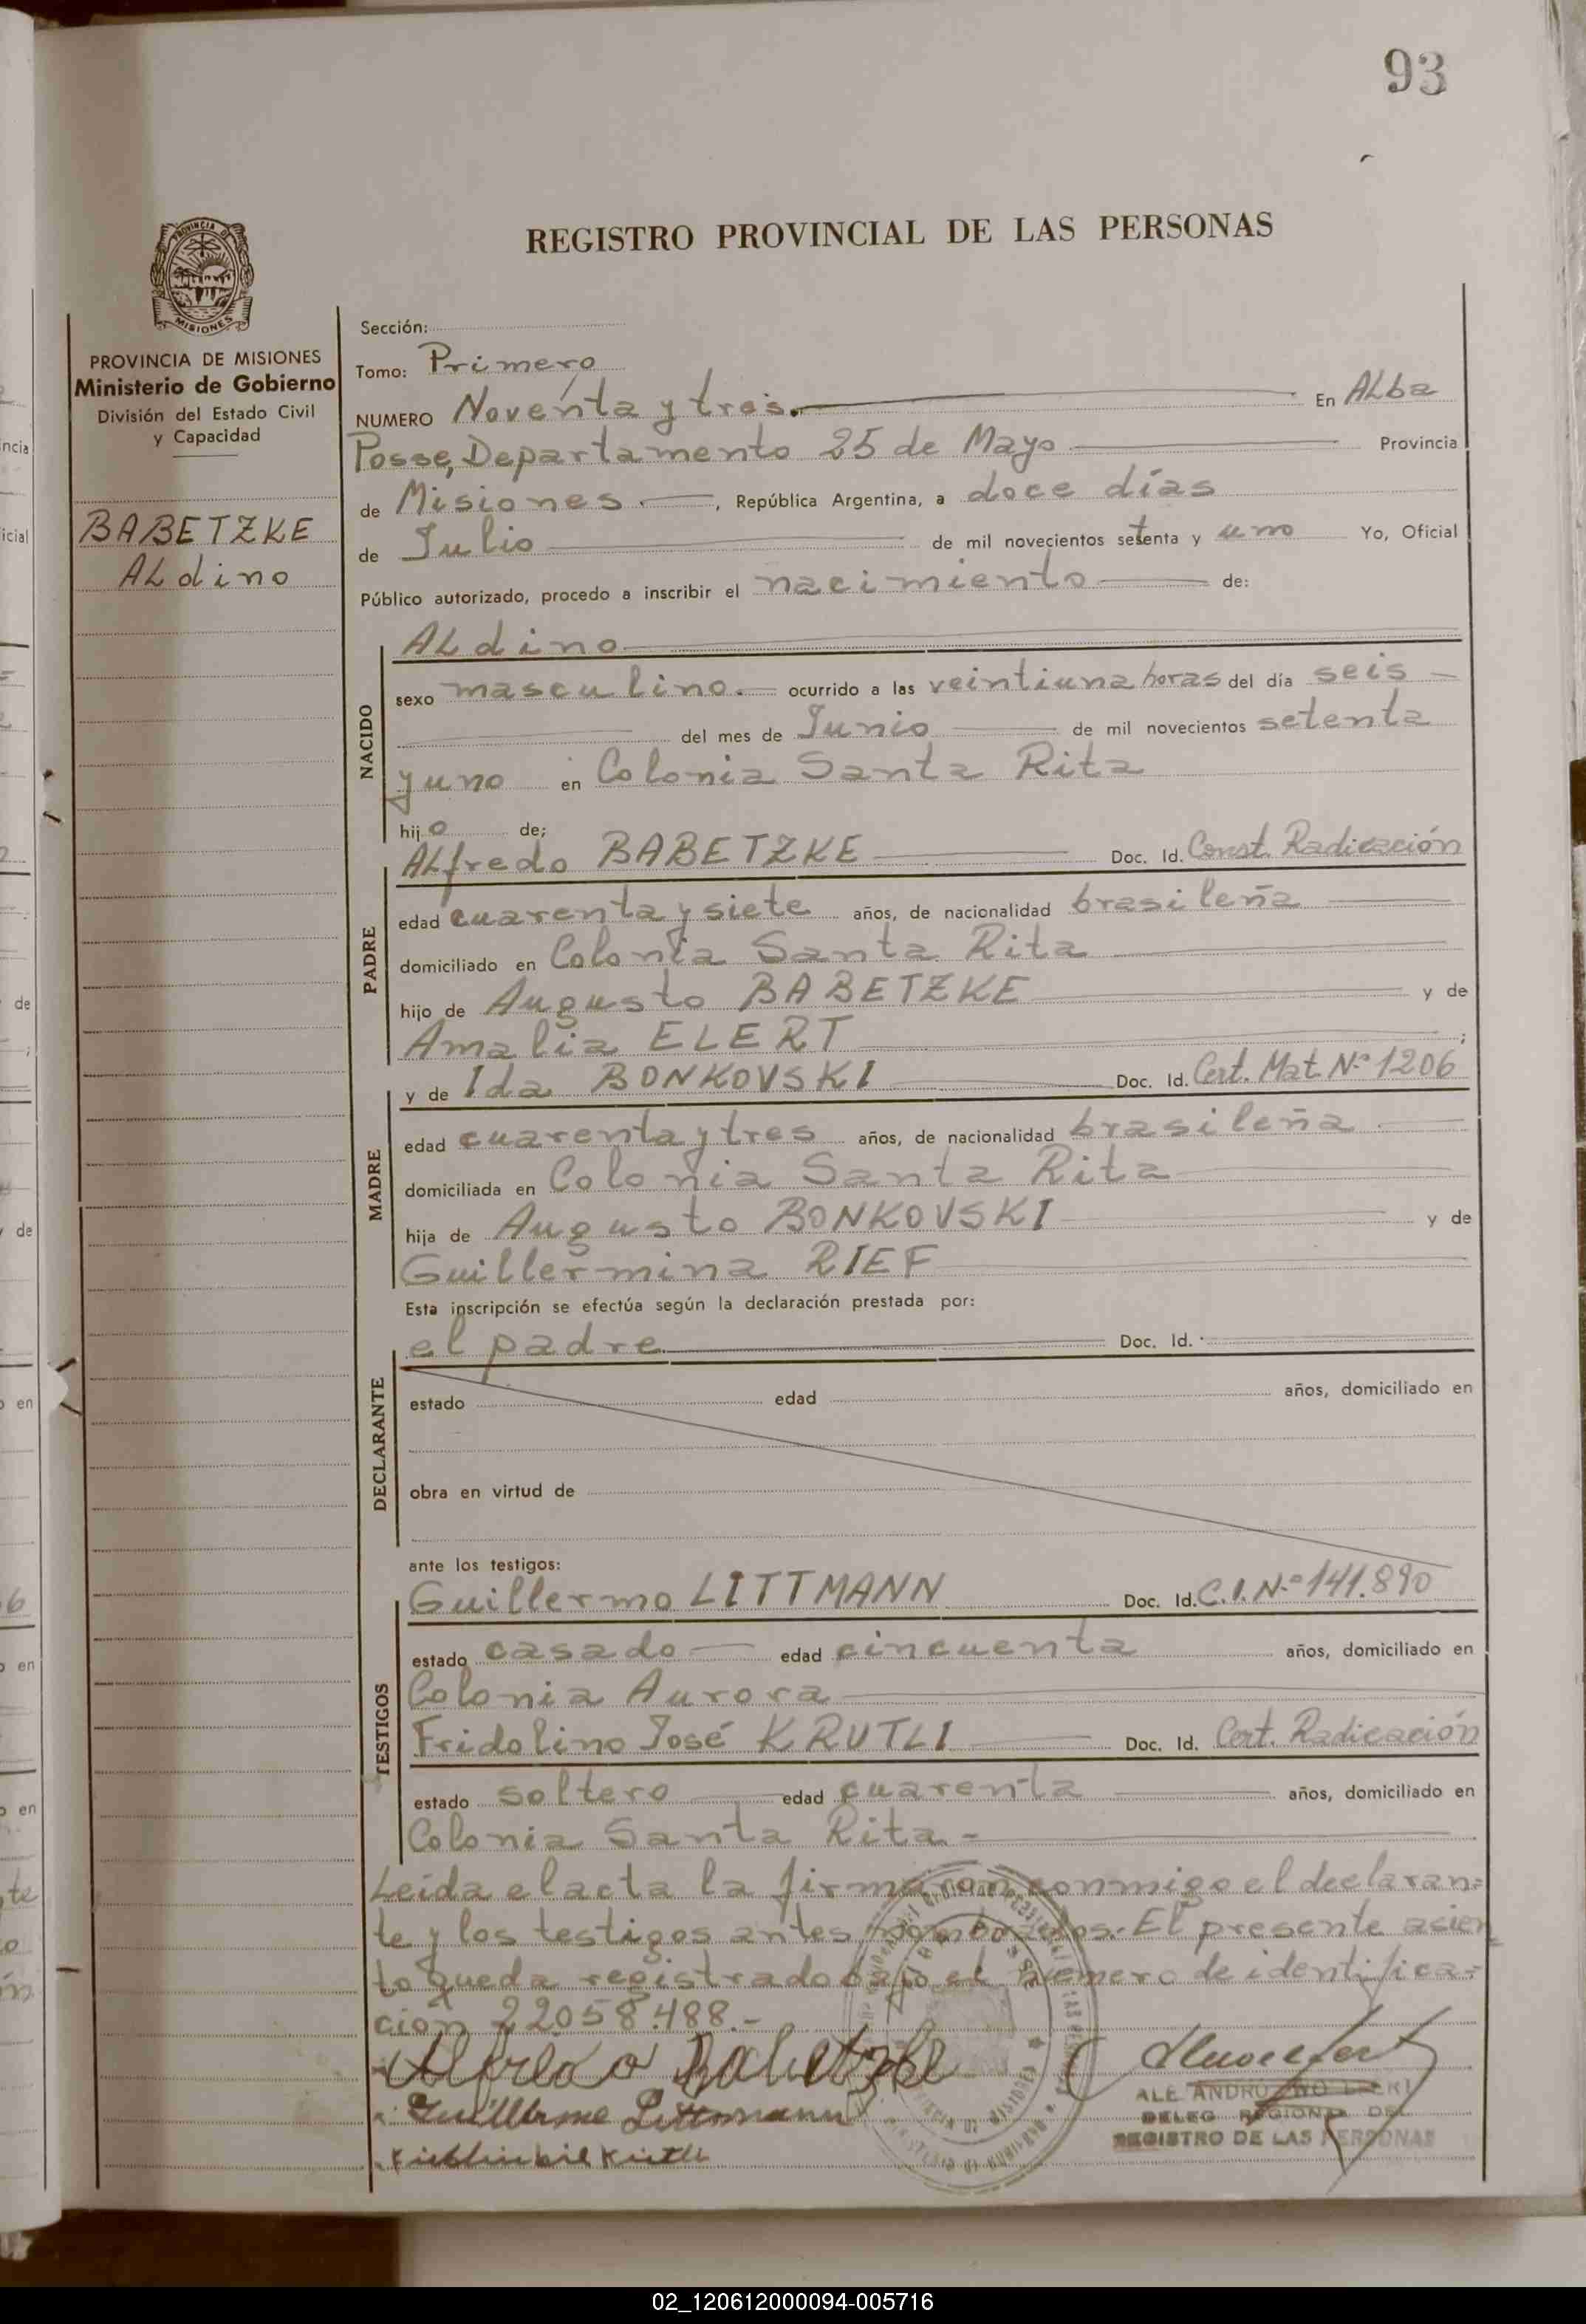 93
REGISTRO PROVINCIAL DE LAS PERSONAS
PROVINCIA DE MISIONES
Ministerio de Gobierno
División del Estado Civil
y Capacidad
BABETZKE
ALdino
Sección:
Tomo: Primero
NUMERO Noventa y tres. En ALba
Posse, Departamento 25 de Mayo Provincia
de Misiones.-, República Argentina, a doce días
de Julio de mil novecientos setenta y uno Yo, Oficial
Público autorizado, procedo a inscribir el nacimiento de:
NACIDO
ALdino
sexo masculino. ocurrido a las veintiuna horas del día seis
del mes de Junio de mil novecientos setenta
y uno en Colonia Santa Rita
hijo de;
PADRE
ALfredo BABETZKE Doc. Id. Const. Radicación
edad cuarenta y siete años, de nacionalidad brasileña
domiciliado en Colonia Santa Rita
hijo de Augusto BABETZKE y de
Amalia ELERT ;
MADRE
y de Ida BONKOVSKI Doc. Id. Cert. Mat. Nº 1206
edad cuarenta y tres años, de nacionalidad brasileña
domiciliada en Colonia Santa Rita
hija de Augusto BONKOVSKI y de
Guillermina RIEF
Esta inscripción se efectúa según la declaración prestada por:
DECLARANTE
el padre Doc. Id.
estado edad años, domiciliado en
obra en virtud de
ante los testigos:
TESTIGOS
Guillermo LITTMANN Doc. Id. C.I. Nº 141.890
estado casado edad cincuenta años, domiciliado en
Colonia Aurora
Fridolino José KRUTLI Doc. Id. Cert. Radicación
estado soltero edad cuarenta años, domiciliado en
Colonia Santa Rita.-
Leída el acta la firmaron conmigo el declaran=
te y los testigos antes nombrados. El presente asien
to queda registrado bajo el número de identifica=
ción 22058.488.-
Alfredo Babetzke
Guillerme Littmann
DELEG. REGIONAL DEL
REGISTRO DE LAS PERSONAS
02_120612000094-005716